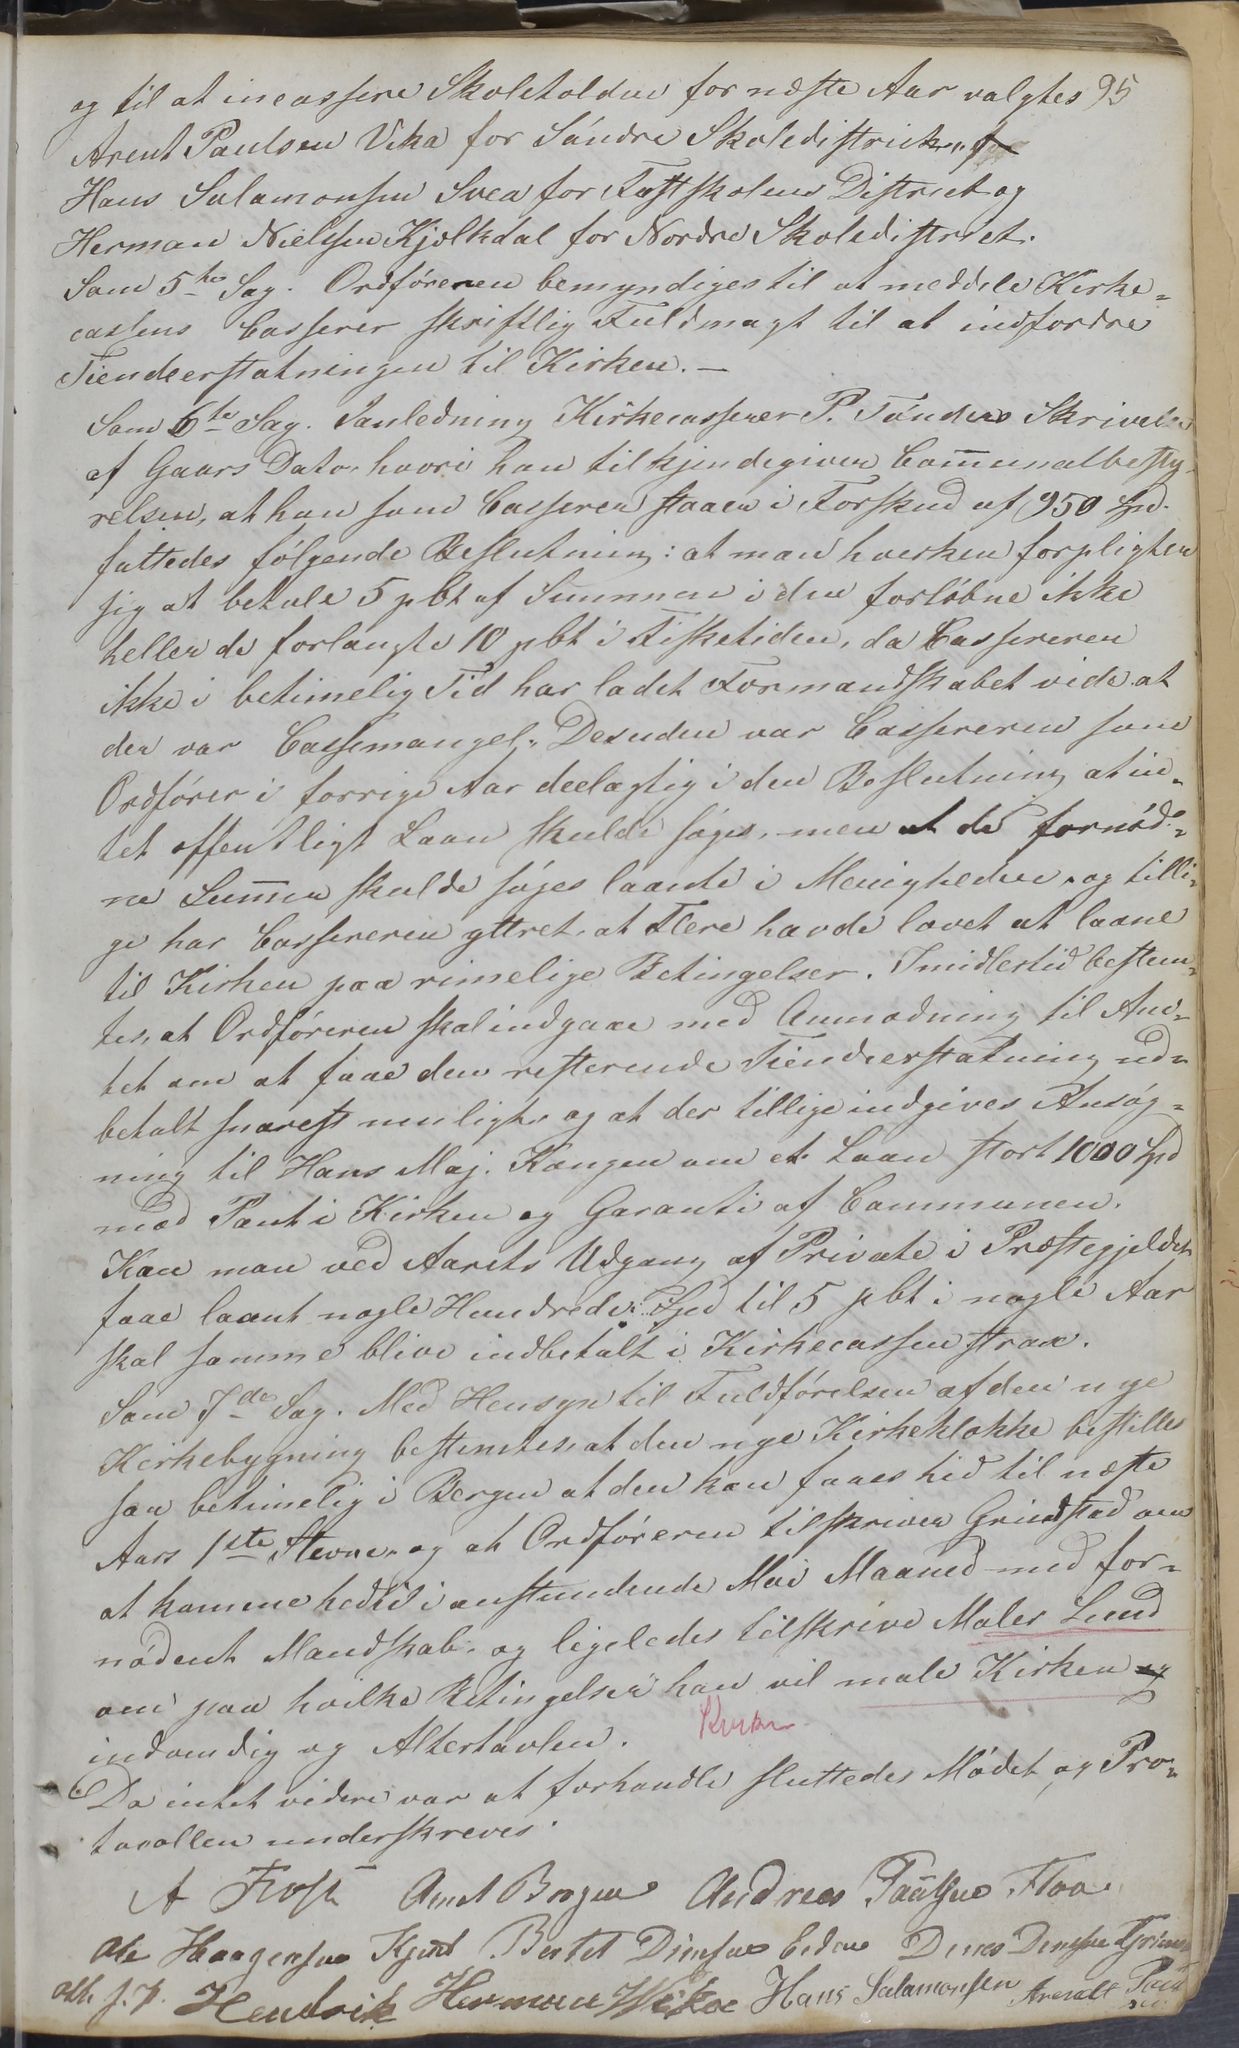 og til at incassere Skoletolden for næste Aar valgtes 95
Arent Paulsen Vika for Søndre Skoledistrict,
Hans Salamonsen Svea for Fastskolens District og
Herman Nielsen Kjølkdal for Nordre Skoledistrict.
Som 5te Sag. Ordføreren bemyndiges til at meddele Kirke-
cassens Casserer skriftlig Fuldmagt til at indfordre
Tiendeerstatningen til Kirken. —
Som 6te Sag. Ianledning Kirkecasserer P. Tønders Skrivelse
af Gaars Dato, hvori han tilkjendegiver Com̄unalbesty-
relsen, at han som Casserer staaer i Forskud af 950 Spd.
fattedes følgende Beslutning: at man hverken forpligter
sig at betale 5 pCt af Summen i den forløbne ikke
heller de forlangte 10 pCt i Fisketiden, da Cassereren
ikke i betimelig Tid har ladet Formandskabet vide at
der var Cassemangel. Desuden var Cassereren som
Ordfører i forrige Aar deelagtig i den Beslutning at in-
tet offentligt Laan skulde søges, men at de fornød-
ne Sum̄er skulde søges laante i Menigheden, og tilli-
ge har Cassereren yttret, at Flere havde lovet at laane
til Kirken paa rimelige Betingelser. Imidlertid bestem-
tes, at Ordføreren skal indgaae med Anmodning til Am-
tet om at faae den resterende Tiendeerstatning ud-
betalt snarest muligt, og at der tillige indgives Ansøg-
ning til Hans Maj. Kongen om et Laan stort 1000 Spd
med Pant i Kirken og Garanti af Communen.
Kan man ved Aarets Udgang af Private i Præstegjeldet
faae laant nogle Hundrede Spd til 5 pCt i nogle Aar
skal samme blive indbetalt i Kirkecassen strax.
Som 7de Sag. Med Hensyn til Fuldførelsen af den nye
Kirkebygning bestemtes, at den nye Kirkeklokke bestilles
saa betimelig i Bergen at den kan faaes hid til næste
Aars 1ste Stevne, og at Ordføreren tilskriver Grindstad om
at komme hedid i anstundende Mai Maaned med for-
nødent Mandskab, og ligeledes tilskrive Maler Lund
om paa hvilke Betingelser han vil male Kirken
indvendig og Altertavlen. Kirken
Da intet videre var at forhandle sluttedes Mødet og Pro-
tocollen underskreves.
A Frost Arnt Bogen Andreas Paulsen Floa
Ole Haagensen Kjønt Bertel Dinesen Eidem Dines Dinesen
Hendrik Herman Wika Hans Salamonsen Arendt Paul
sen